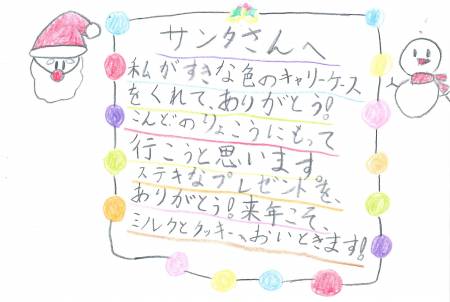 サンタさんへ
私がすきな色のキャリーケース
をくれて、ありがとう!
こんどのりょこうにもって
行こうと思います。
ステキなプレゼントを、
ありがとう!来年こそ、
ミルクとクッキーおいときます!